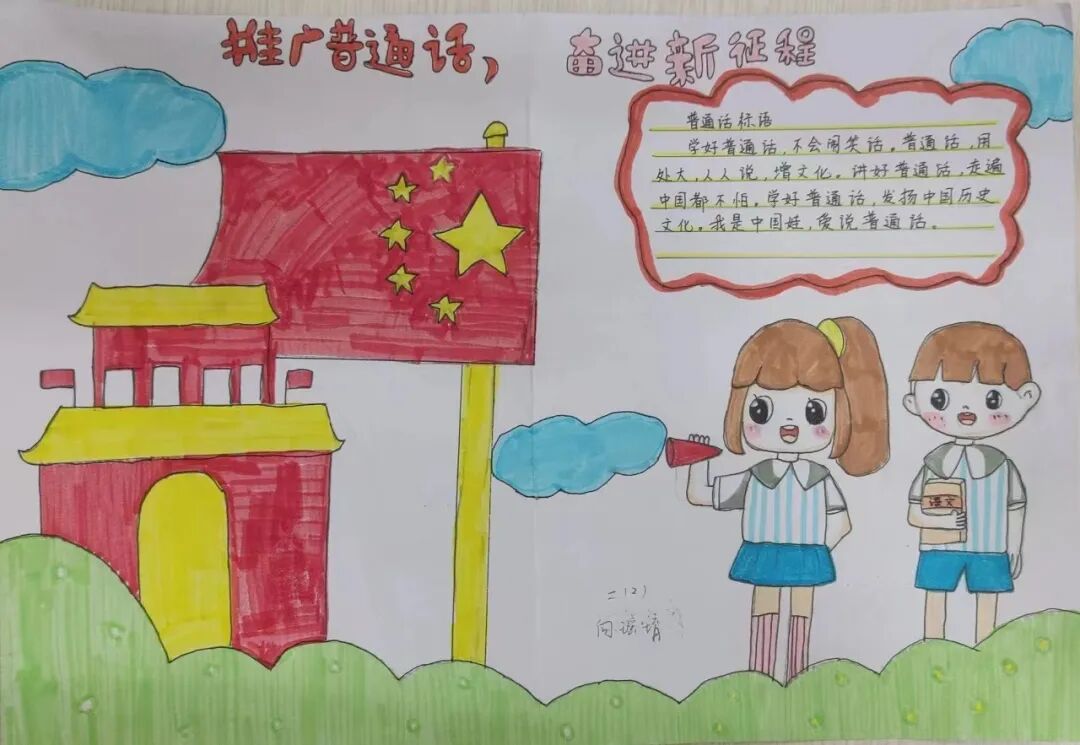 推广普通话，奋进新征程
普通话标语
学好普通话，不会闹笑话。普通话，用
处大，人人说，增文化。讲好普通话，走遍
中国都不怕。学好普通话，发扬中国历史
文化。我是中国娃，爱说普通话。
语文
二（2）